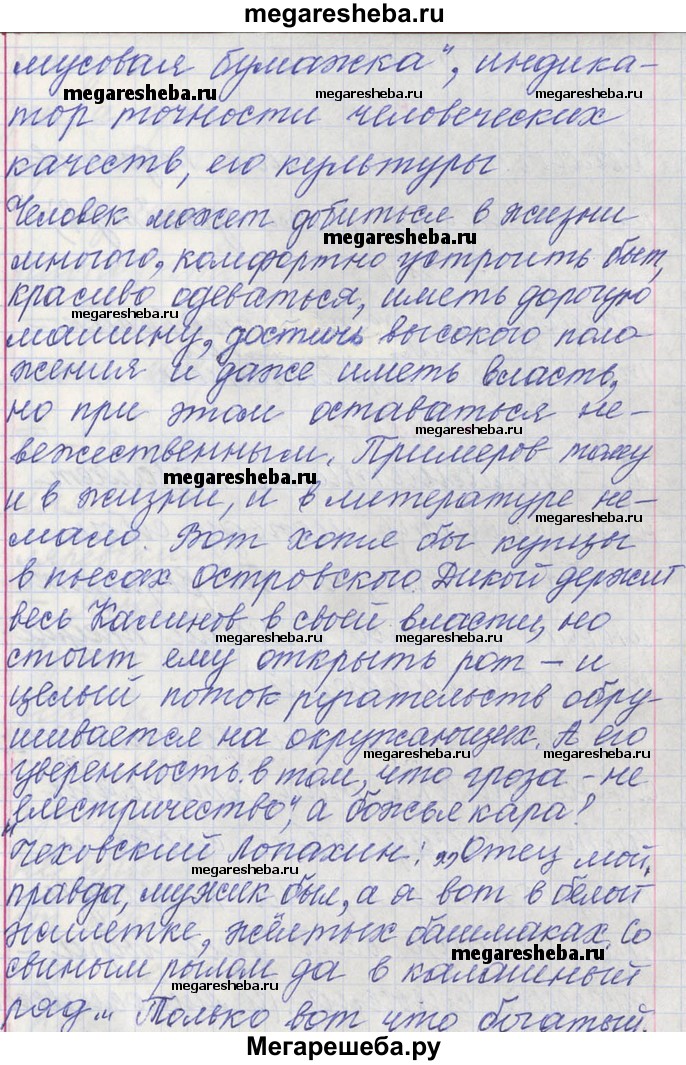 megaresheba.ru
мусовая бумажка", индика-
megaresheba.ru megaresheba.ru megaresheba.ru
тор точности человеческих
качеств, его культуры
Человек может добиться в жизни
megaresheba.ru
многого, комфортно устроить быт,
красиво одеваться, иметь дорогую
megaresheba.ru
машину, достичь высокого поло-
жения и даже иметь власть,
но при этом оставаться не-
megaresheba.ru
вежественным. Примеров тому
megaresheba.ru megaresheba.ru
и в жизни, и в литературе не-
megaresheba.ru
мало. Вот хотя бы купцы
в пьесах Островского. Дикой держит
весь Калинов в своей власти, но
megaresheba.ru megaresheba.ru
стоит ему открыть рот – и
целый поток ругательств обру
шивается на окружающих. А его
megaresheba.ru megaresheba.ru
уверенность в том, что гроза – не
„елестричество", а божья кара?
Чеховский Лопахин: „Отец мой,
megaresheba.ru
правда, мужик был, а я вот в белой
жилетке, жёлтых башмаках. Со
megaresheba.ru
свиным рылом да в калашный
megaresheba.ru
ряд..." Только вот что богатый.
megaresheba.ru megaresheba.ru
Мегарешеба.ру